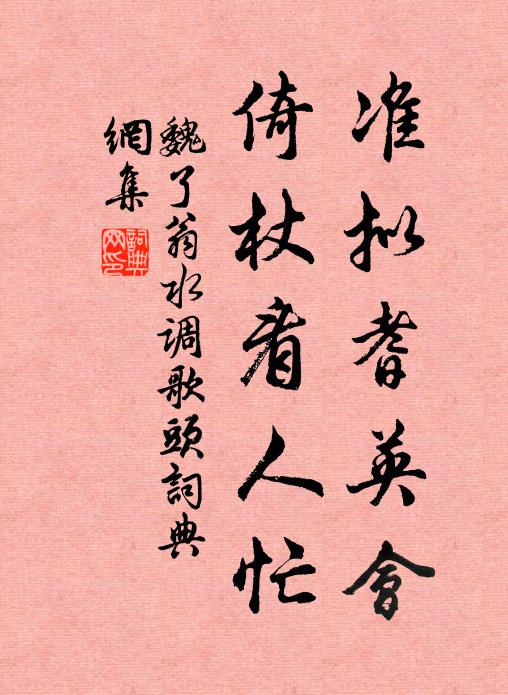 准拟耆英會
倚杖看人忙
魏了翁水调歌頭詞典
網集
詞典
网印